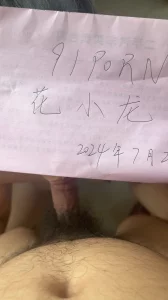 91PORN
花小龙
2024年7月2